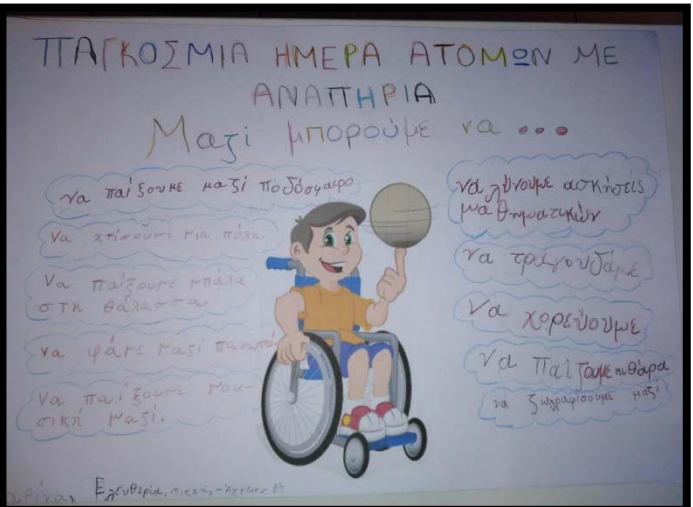 ΠΑΓΚΟΣΜΙΑ ΗΜΕΡΑ ΑΤΟΜΩΝ ΜΕ
ΑΝΑΠΗΡΙΑ
Μαζί μπορούμε να ...
να παίξουμε μαζί ποδόσφαιρο
Να χτίσουμε μια πόλη.
Να παίξουμε μπάλα
στη θάλασσα.
να φάμε μαζί
Να παίξουμε μου-
σική μαζί.
να λύνουμε ασκήσεις
μαθηματικών
να τραγουδάμε
να χορεύουμε
να παίζουμε κιθάρα
να ζωγραφίσουμε μαζί
Ελευθερία,